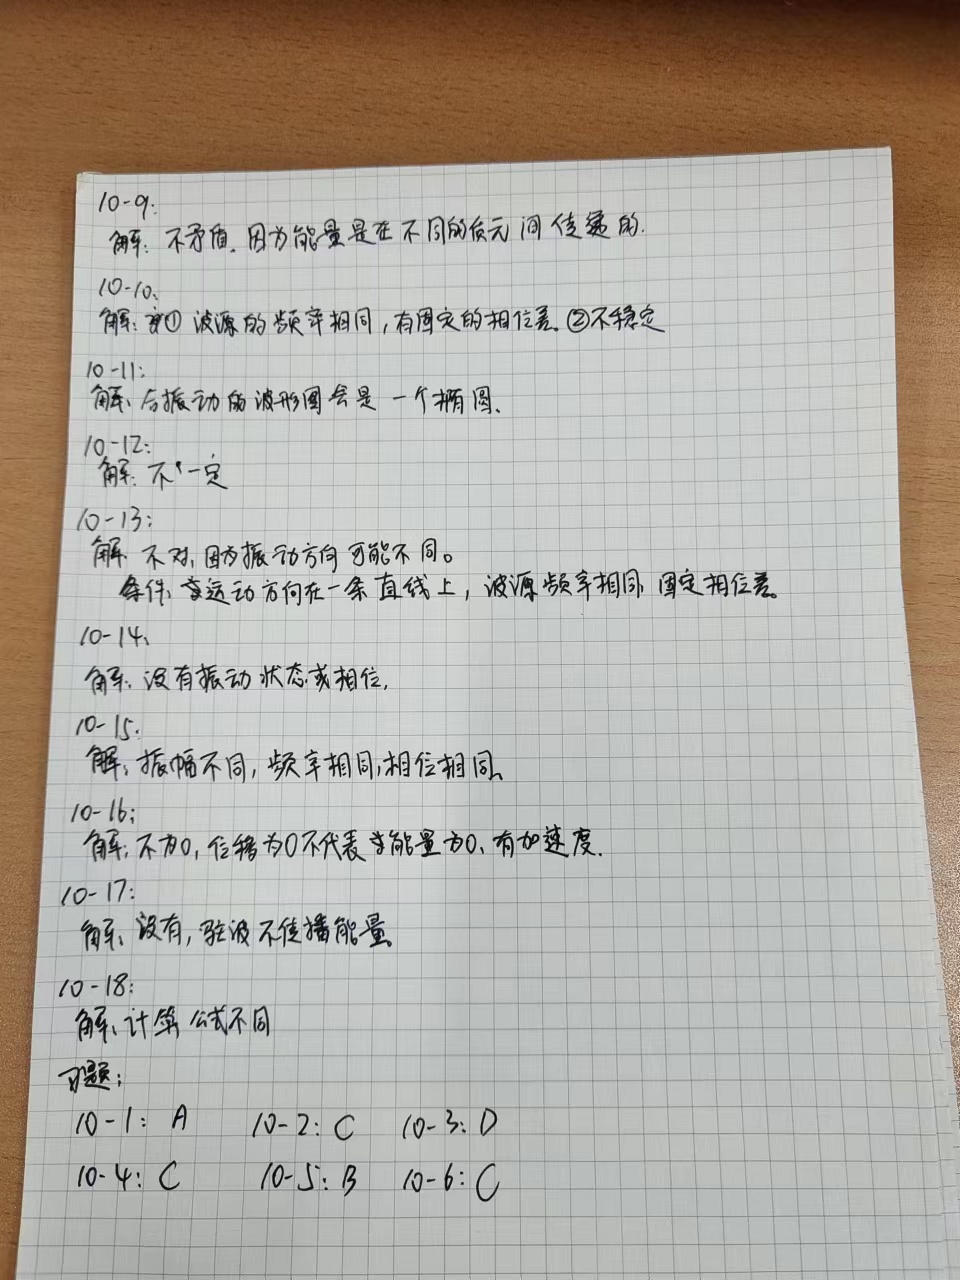 10-9:
解: 不矛盾. 因为能量是在不同的质元间传递的.
10-10:
解: ① 波源的频率相同,有固定的相位差. ②不稳定
10-11:
解: 合振动的波形图会是一个椭圆.
10-12:
解: 不一定
10-13:
解: 不对, 因为振动方向可能不同。
条件: 运动方向在一条直线上, 波源频率相同, 固定相位差.
10-14:
解: 没有振动状态或相位.
10-15:
解: 振幅不同, 频率相同, 相位相同.
10-16:
解: 不为0, 位移为0不代表能量为0, 有加速度.
10-17:
解: 没有, 驻波不传播能量.
10-18:
解: 计算公式不同
习题:
10-1: A 10-2: C 10-3: D
10-4: C 10-5: B 10-6: C